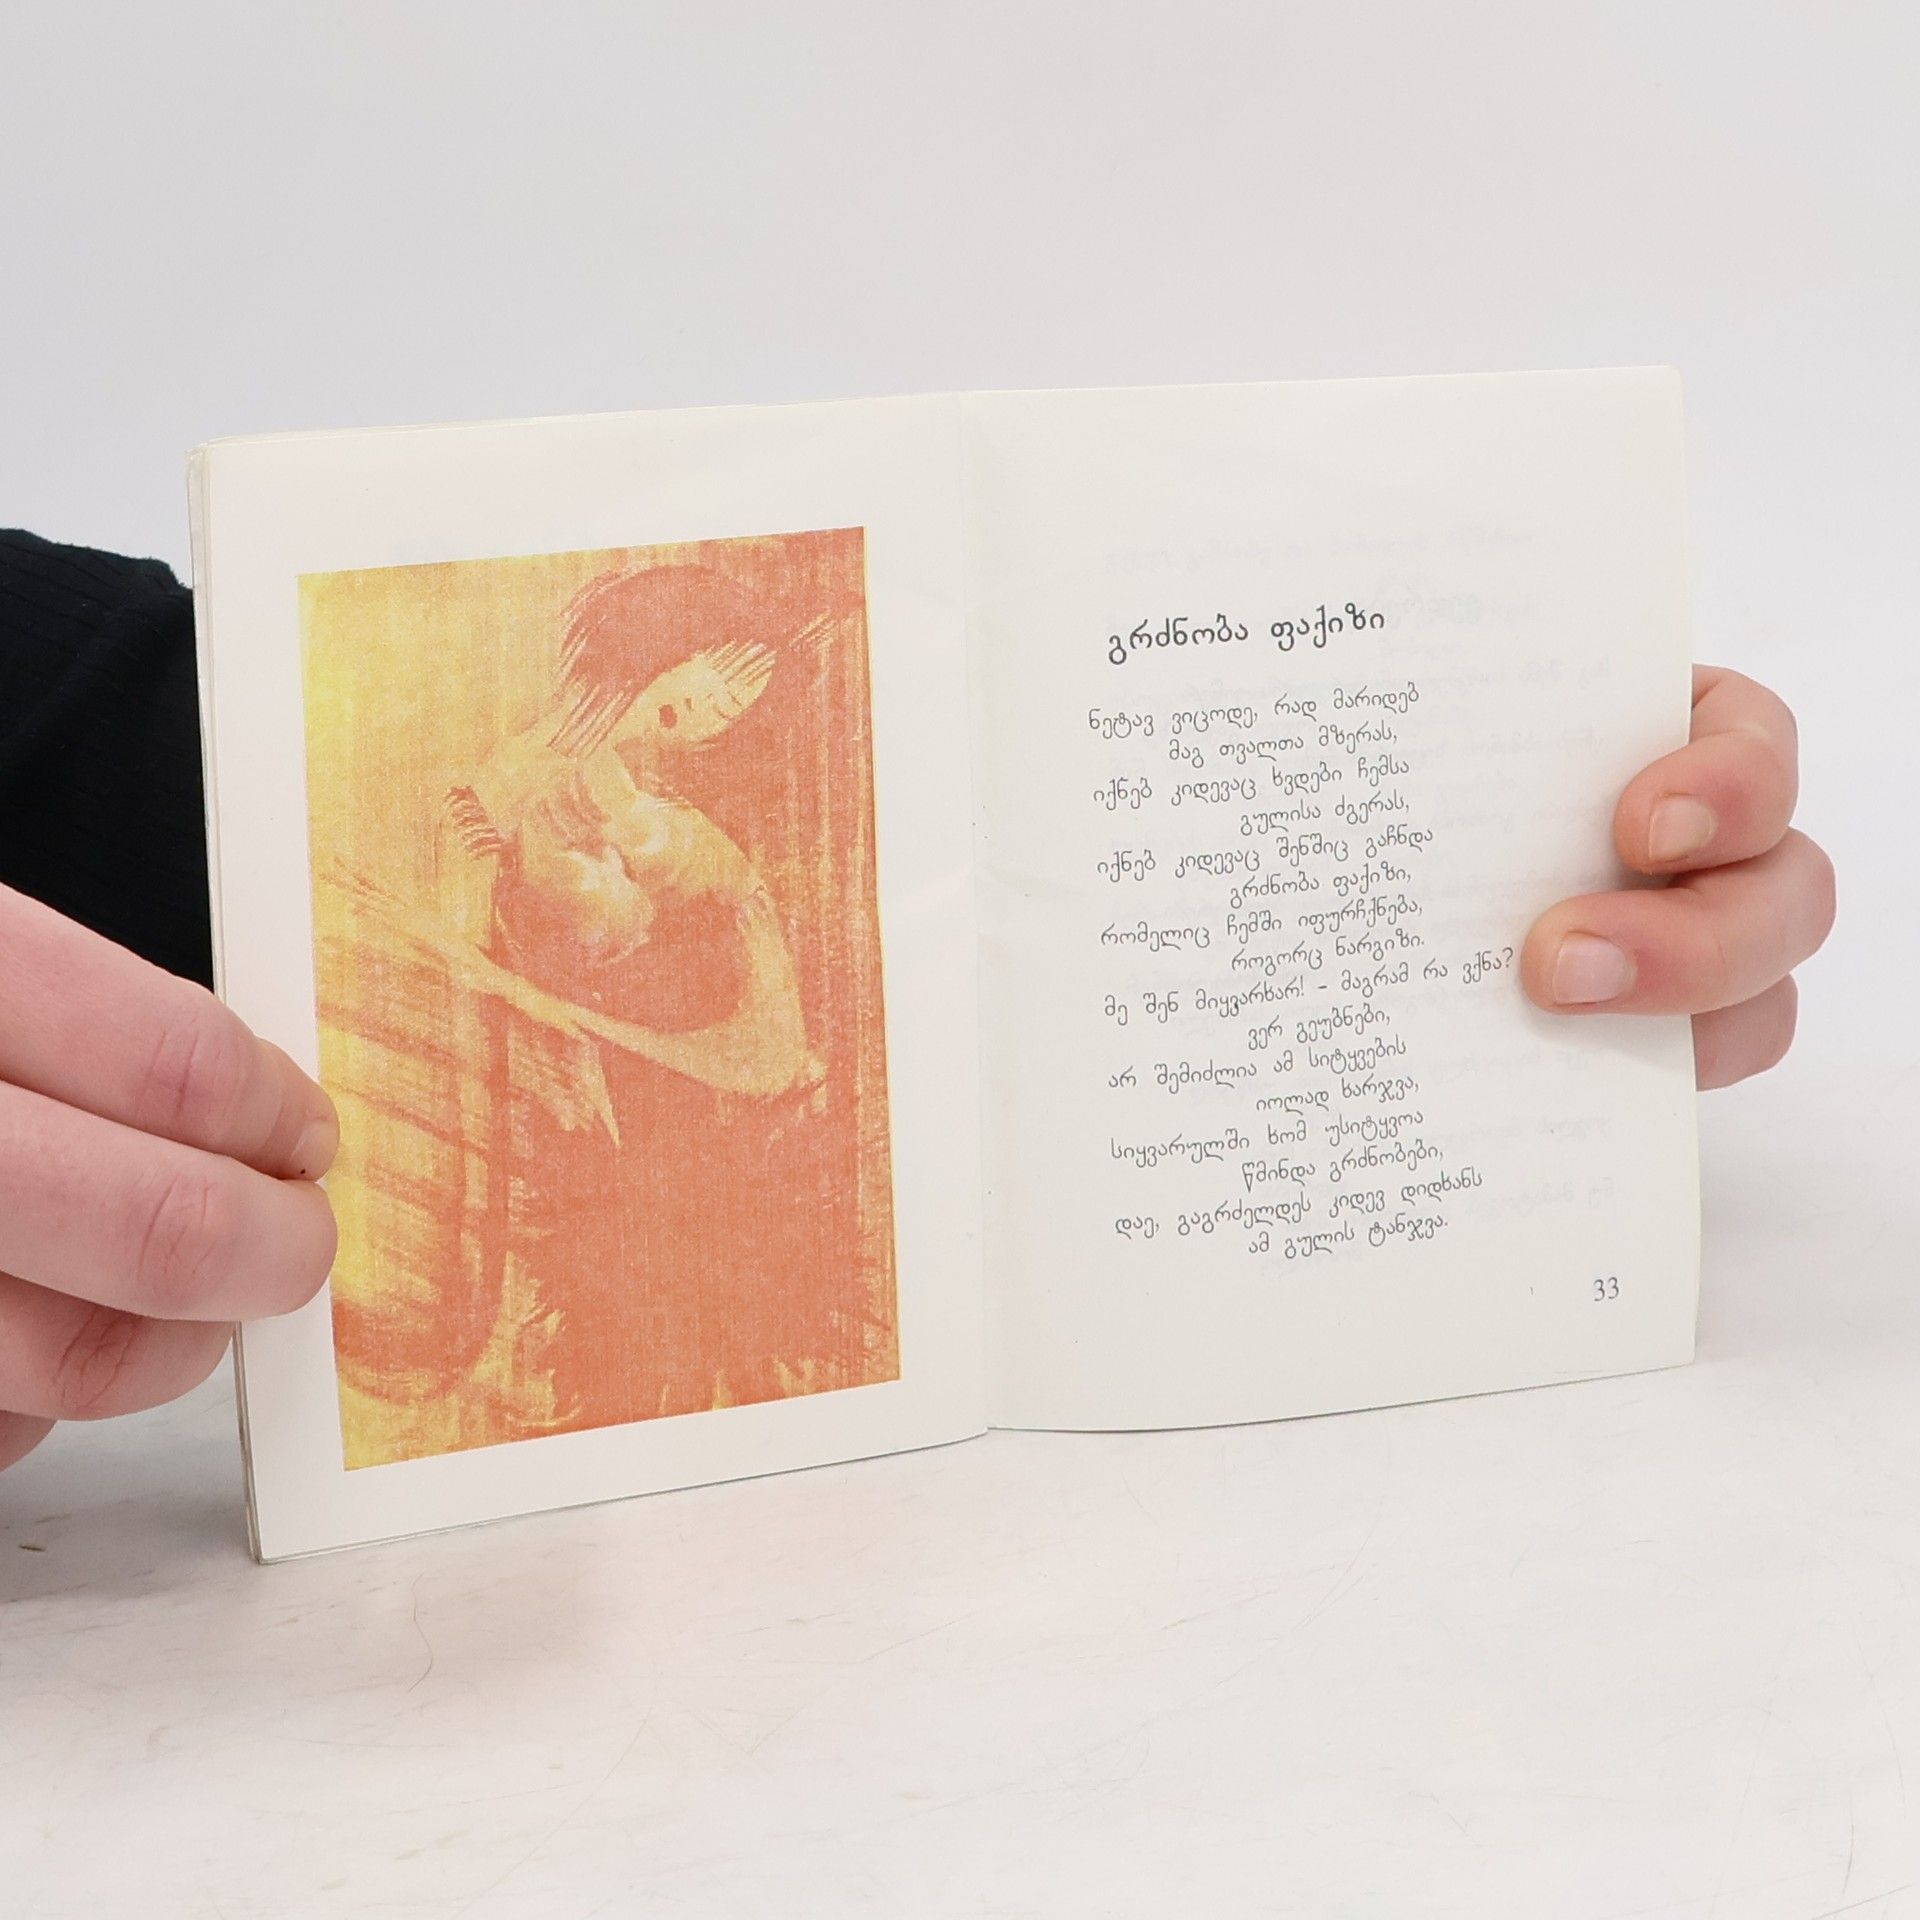 გრძნობა ფაქიზი
ნეტავ ვიცოდე, რად მარიდებ
მაგ თვალთა მზერას,
იქნებ კიდევაც ხვდები ჩემსა
გულისა ძგერას,
იქნებ კიდევაც შენშიც გაჩნდა
გრძნობა ფაქიზი,
რომელიც ჩემში იფურჩქნება,
როგორც ნარგიზი.
მე შენ მიყვარხარ! - მაგრამ რა ვქნა?
ვერ გეუბნები,
არ შემიძლია ამ სიტყვების
იოლად ხარჯვა,
სიყვარულში ხომ უსიტყვოა
წმინდა გრძნობები,
დაე, გაგრძელდეს კიდევ დიდხანს
ამ გულის ტანჯვა.
33